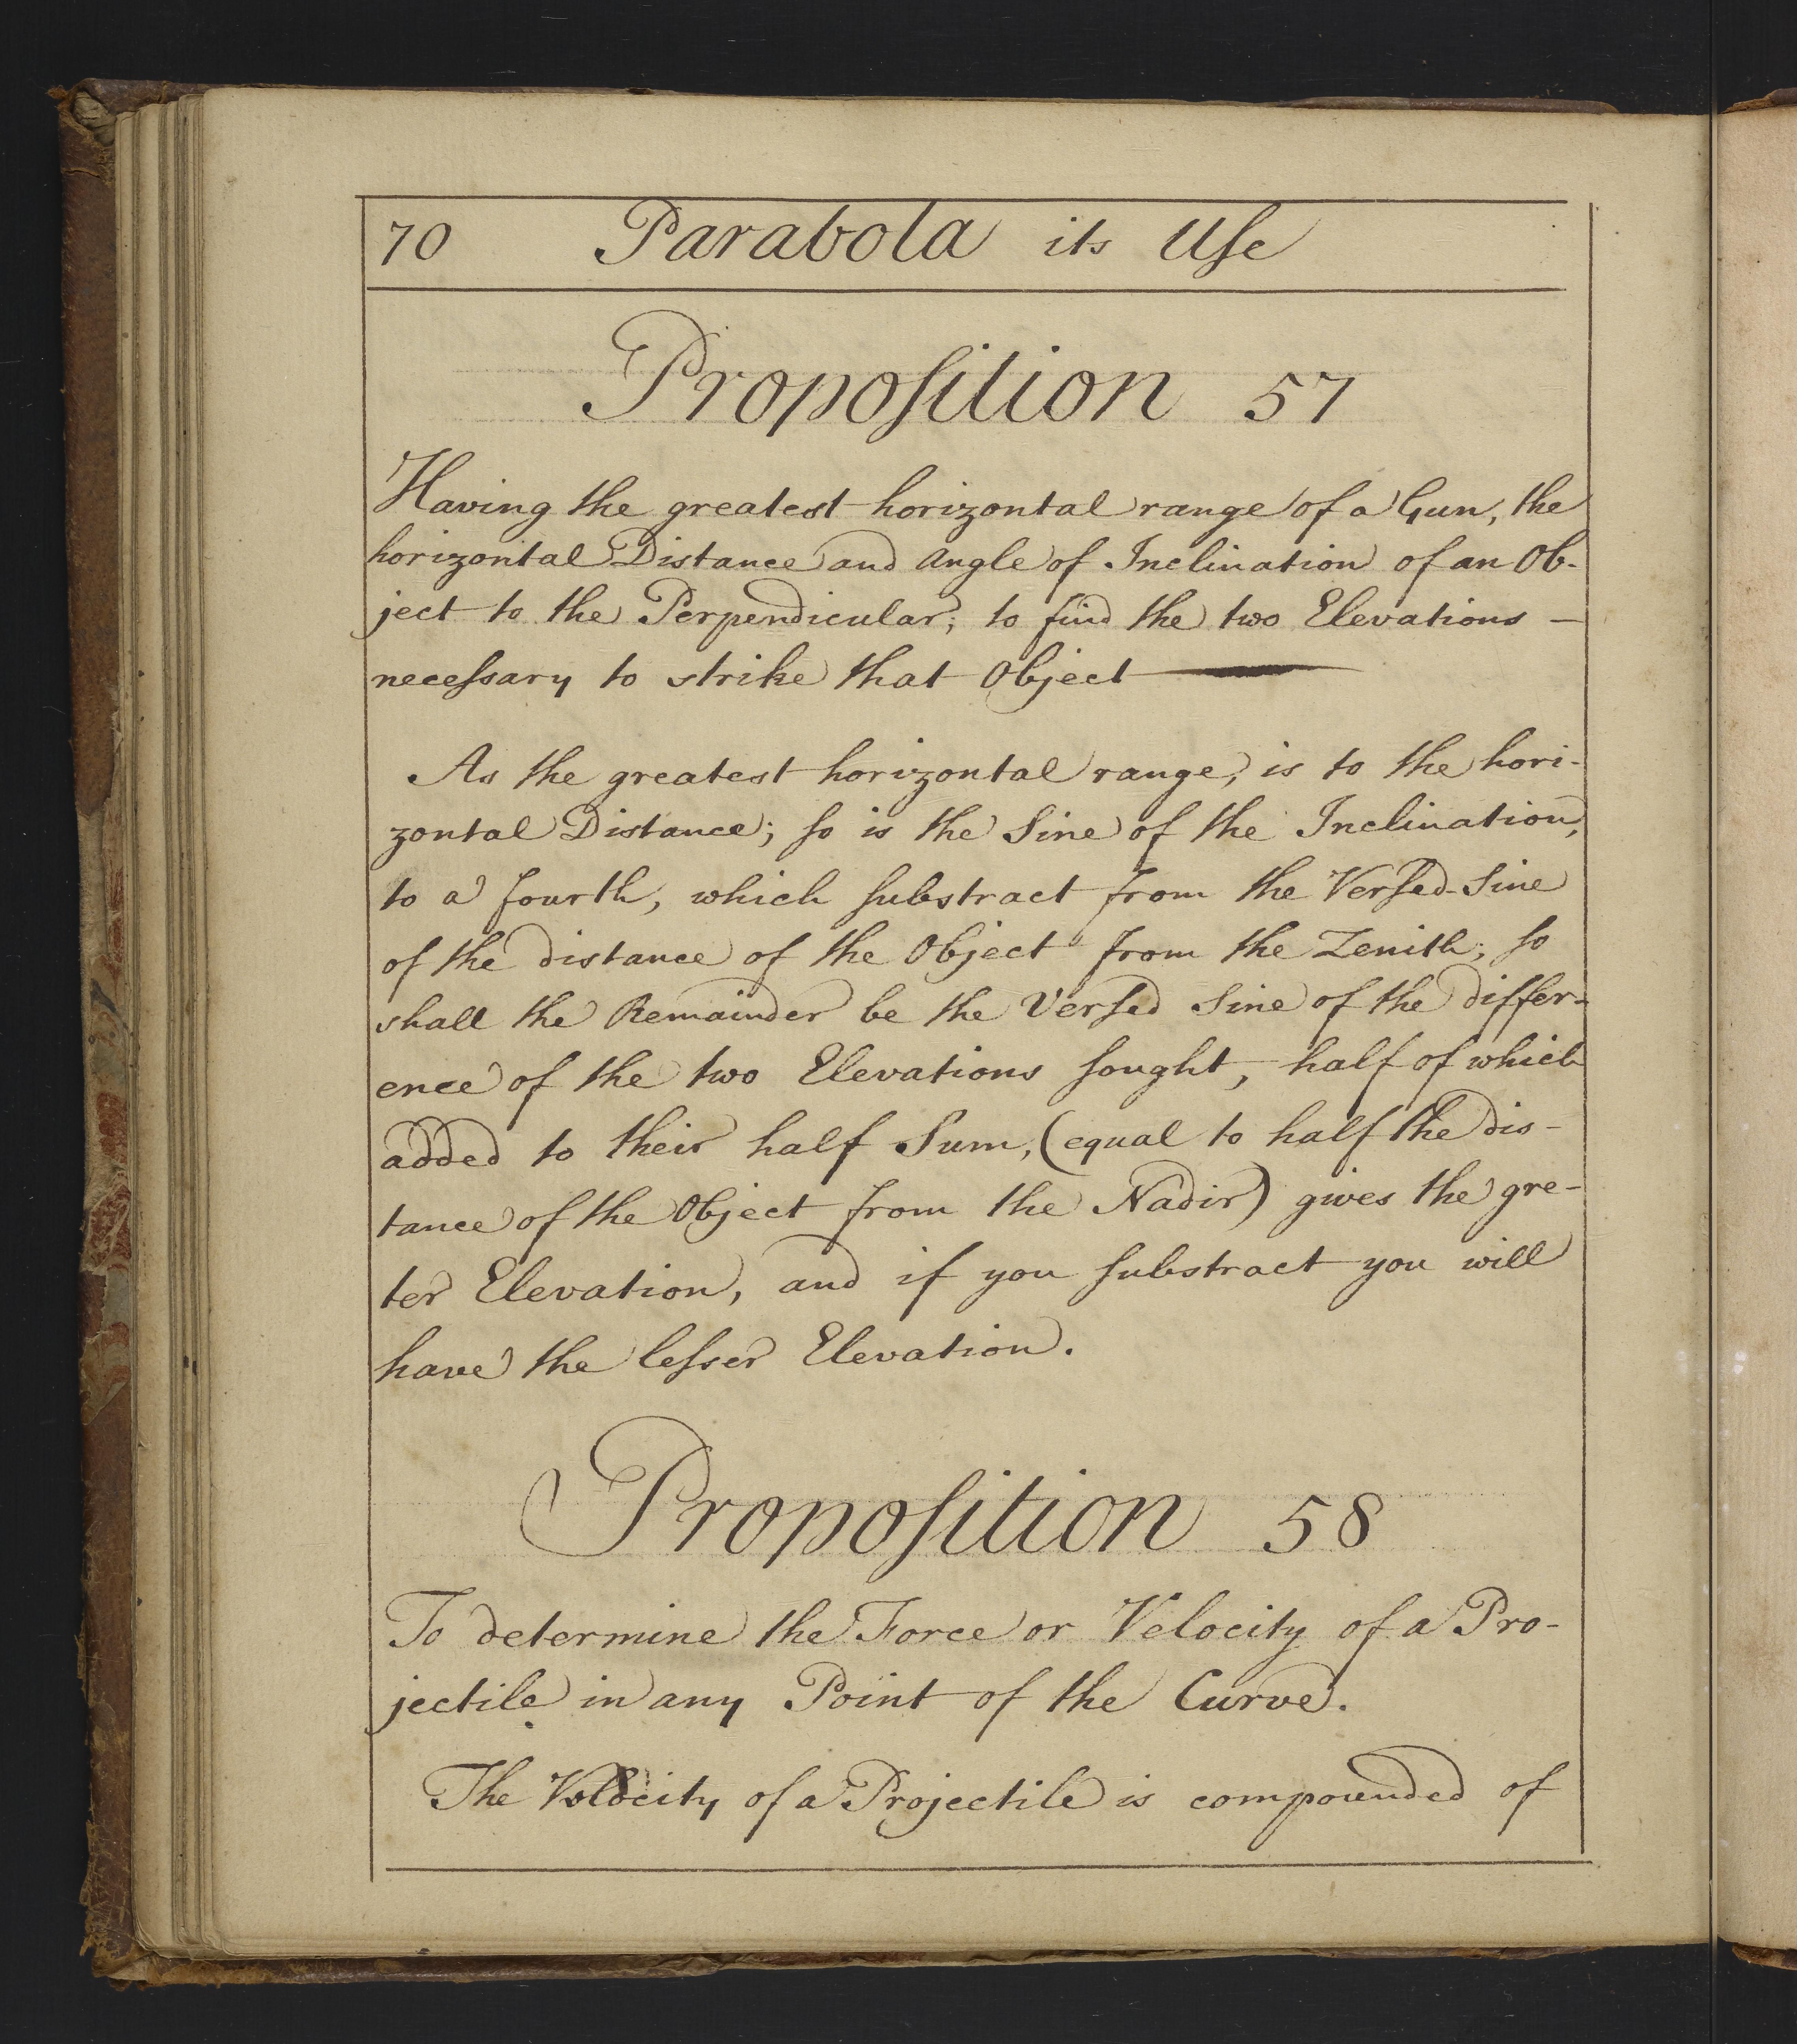 70 Parabola its Uſe
Propoſition 57
Having the greatest horizontal range of a Gun, the
horizontal Distance and Angle of Inclination of an Ob-
ject to the Perpendicular; to find the two Elevations –
neceſsary to strike that Object
As the greatest horizontal range, is to the hori-
zontal Distance; ſo is the Sine of the Inclination,
to a fourth, which ſubstract from the Verſed-Sine
of the distance of the Object from the Zenith; ſo
shall the Remainder be the Verſed Sine of the differ-
ence of the two Elevations ſought, half of which
added to their half Sum, (equal to half the dis-
tance of the Object from the Nadir) gives the gre-
ter Elevation, and if you ſubstract you will
have the leſser Elevation.
Propoſition 58
To determine the Force or Velocity of a Pro-
jectile in any Point of the Curve.
The Velocity of a Projectile is compounded of